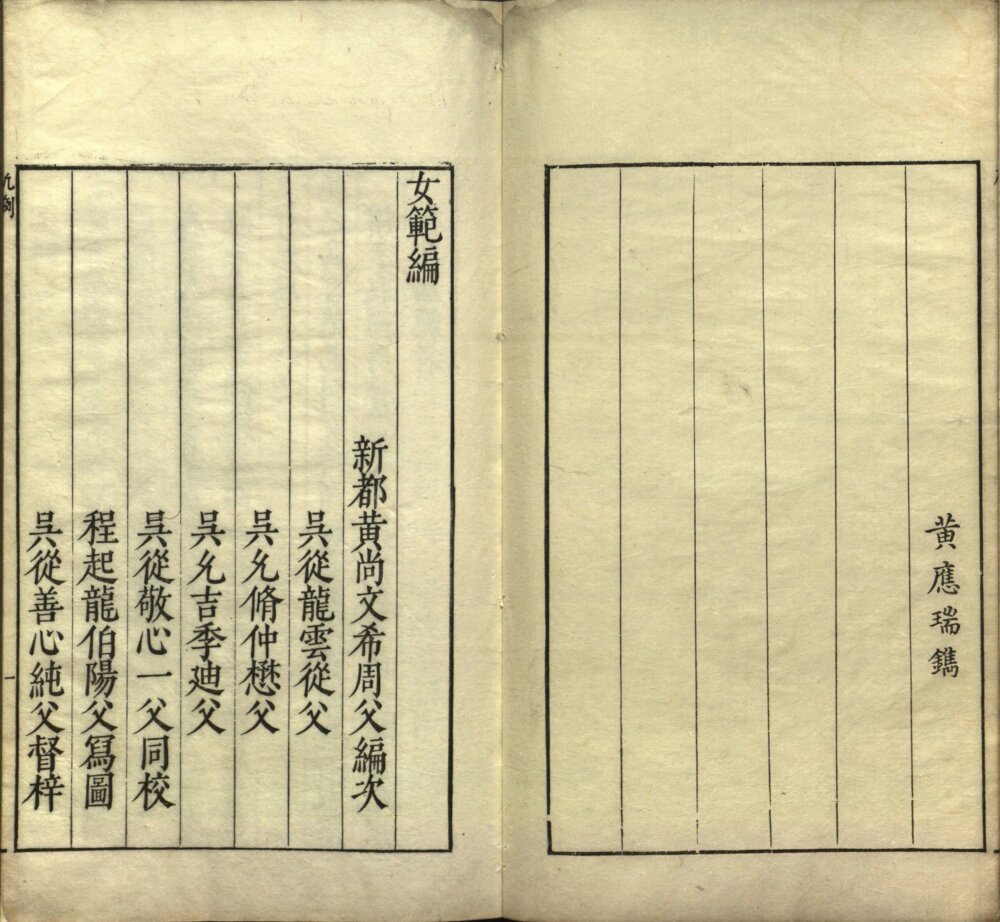 黄應瑞鐫
女範編
新都黄尚文希周父編次
吳從龍雲從父
吳允脩仲懋父
吳允吉季廸父
吳從敬心一父同校
程起龍伯陽父冩圖
吳從善心純父督梓
凡例
一